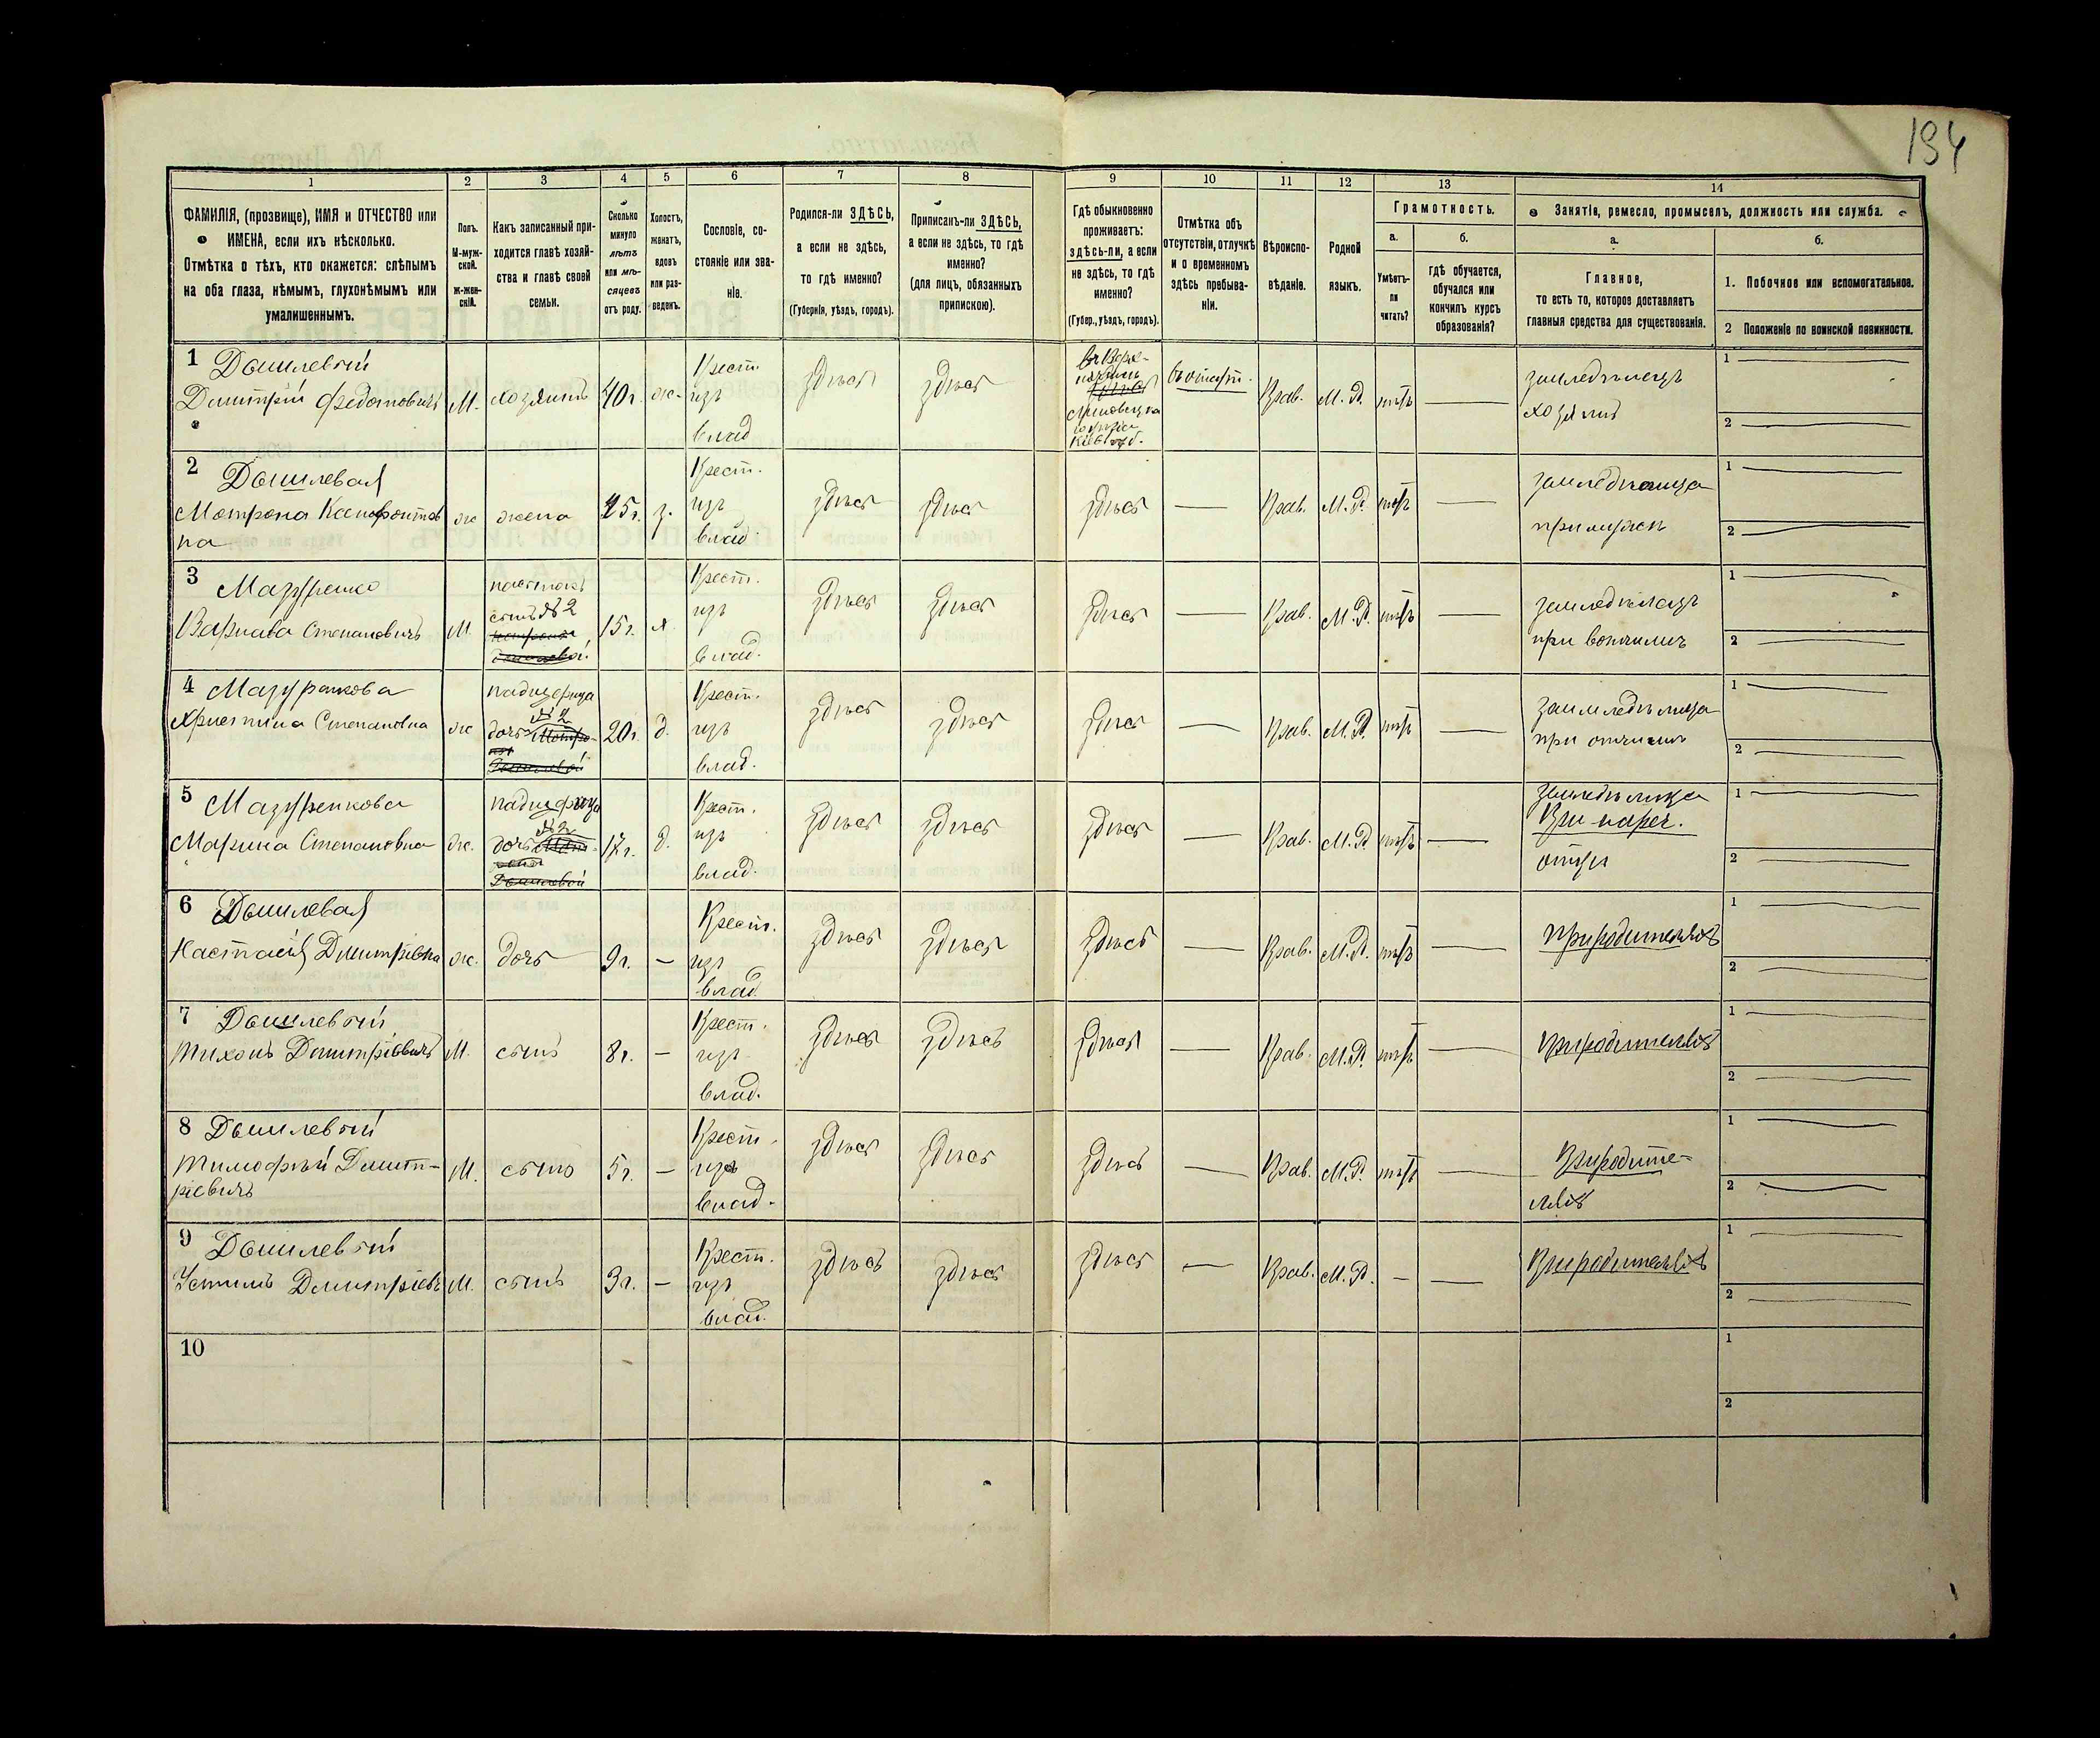 194
1
2
3
4
5
6
7
8
9
10
11
12
13
14
ФАМИЛІЯ, (прозвище), ИМЯ и ОТЧЕСТВО или
ИМЕНА, если ихъ нѣсколько.
Отмѣтка о тѣхъ, кто окажется: слѣпымъ
на оба глаза, нѣмымъ, глухонѣмымъ или
умалишеннымъ.
Полъ.
М-муж-
ской.
ж-жен-
скій.
Какъ записанный при-
ходится главѣ хозяй-
ства и главѣ своей
семьи.
Сколько
минуло
лѣтъ
или мѣ-
сяцевъ
отъ роду.
Холостъ,
женатъ,
вдовъ
или раз-
веденъ.
Сословіе, со-
стояніе или зва-
ніе.
Родился-ли ЗДѢСЬ,
а если не здѣсь,
то гдѣ именно?
(Губернія, уѣздъ, городъ).
Приписанъ-ли ЗДѢСЬ,
а если не здѣсь, то гдѣ
именно?
(для лицъ, обязанныхъ
припискою).
Гдѣ обыкновенно
проживаетъ:
здѣсь-ли, а если
не здѣсь, то гдѣ
именно?
(Губер., уѣздъ, городъ).
Отмѣтка объ
отсутствіи, отлучкѣ
и о временномъ
здѣсь пребыва-
ніи.
Вѣроиспо-
вѣданіе.
Родной
языкъ.
Грамотность.
а.
Умѣетъ-
ли
читать?
б.
гдѣ обучается,
обучался или
кончилъ курсъ
образованія?
Занятія, ремесло, промыселъ, должность или служба.
а.
Главное,
то есть то, которое доставляетъ
главныя средства для существованія.
б.
1. Побочное или вспомогательное.
2 Положеніе по воинской повинности.
1 Дышлевый
Дмитрій Федотовичъ
М.
хозяинъ
40 г.
ж.
Крест.
изъ
влад
здѣсь
здѣсь
Кіев. губ.
въ отлуч.
Прав.
М. Р.
нѣтъ
земледѣлецъ
хозяинъ
1
2
2 Дышлевая
Мотрона Ксенофонтов
на
ж
жена
45 г.
з.
Крест.
изъ
влад.
здѣсь
здѣсь
здѣсь
Прав.
М. Р.
нѣтъ
земледѣлица
при мужѣ
1
2
3 Мазуренко
Варнава Степановичъ
М.
пасынокъ
сынъ № 2
15 г.
х.
Крест.
изъ
влад.
здѣсь
здѣсь
здѣсь
Прав.
М. Р.
нѣтъ
земледѣлецъ
при вотчимѣ
1
2
4 Мазуренкова
Христина Степановна
ж
падчерица
№ 2
дочь
20 г.
д.
Крест.
изъ
влад.
здѣсь
здѣсь
здѣсь
Прав.
М. Р.
нѣтъ
земледѣлица
при отчимѣ
1
2
5 Мазуренкова
Марина Степановна
ж.
падчерица
№ 2
дочь
17 г.
д.
Крест.
изъ
влад.
здѣсь
здѣсь
здѣсь
Прав.
М. Р.
нѣтъ
земледѣлица
При нареч.
отцѣ
1
2
6 Дышлевая
Настасія Дмитріевна
ж.
дочь
9 г.
Крест.
изъ
влад.
здѣсь
здѣсь
здѣсь
Прав.
М. Р.
нѣтъ
При родителяхъ
1
2
7 Дышлевый
Тихонъ Дмитріевичъ
М.
сынъ
8 г.
Крест.
изъ
влад.
здѣсь
здѣсь
здѣсь
Прав.
М. Р.
нѣтъ
При родителяхъ
1
2
8 Дышлевый
Тимофѣй Дмит-
ріевичъ
М.
сынъ
5 г.
Крест.
изъ
влад.
здѣсь
здѣсь
здѣсь
Прав.
М. Р.
нѣтъ
При родите-
ляхъ
1
2
9 Дышлевый
Устинъ Дмитріевъ
М.
сынъ
3 г.
Крест.
изъ
влад.
здѣсь
здѣсь
здѣсь
Прав.
М. Р.
При родителяхъ
1
2
10
1
2